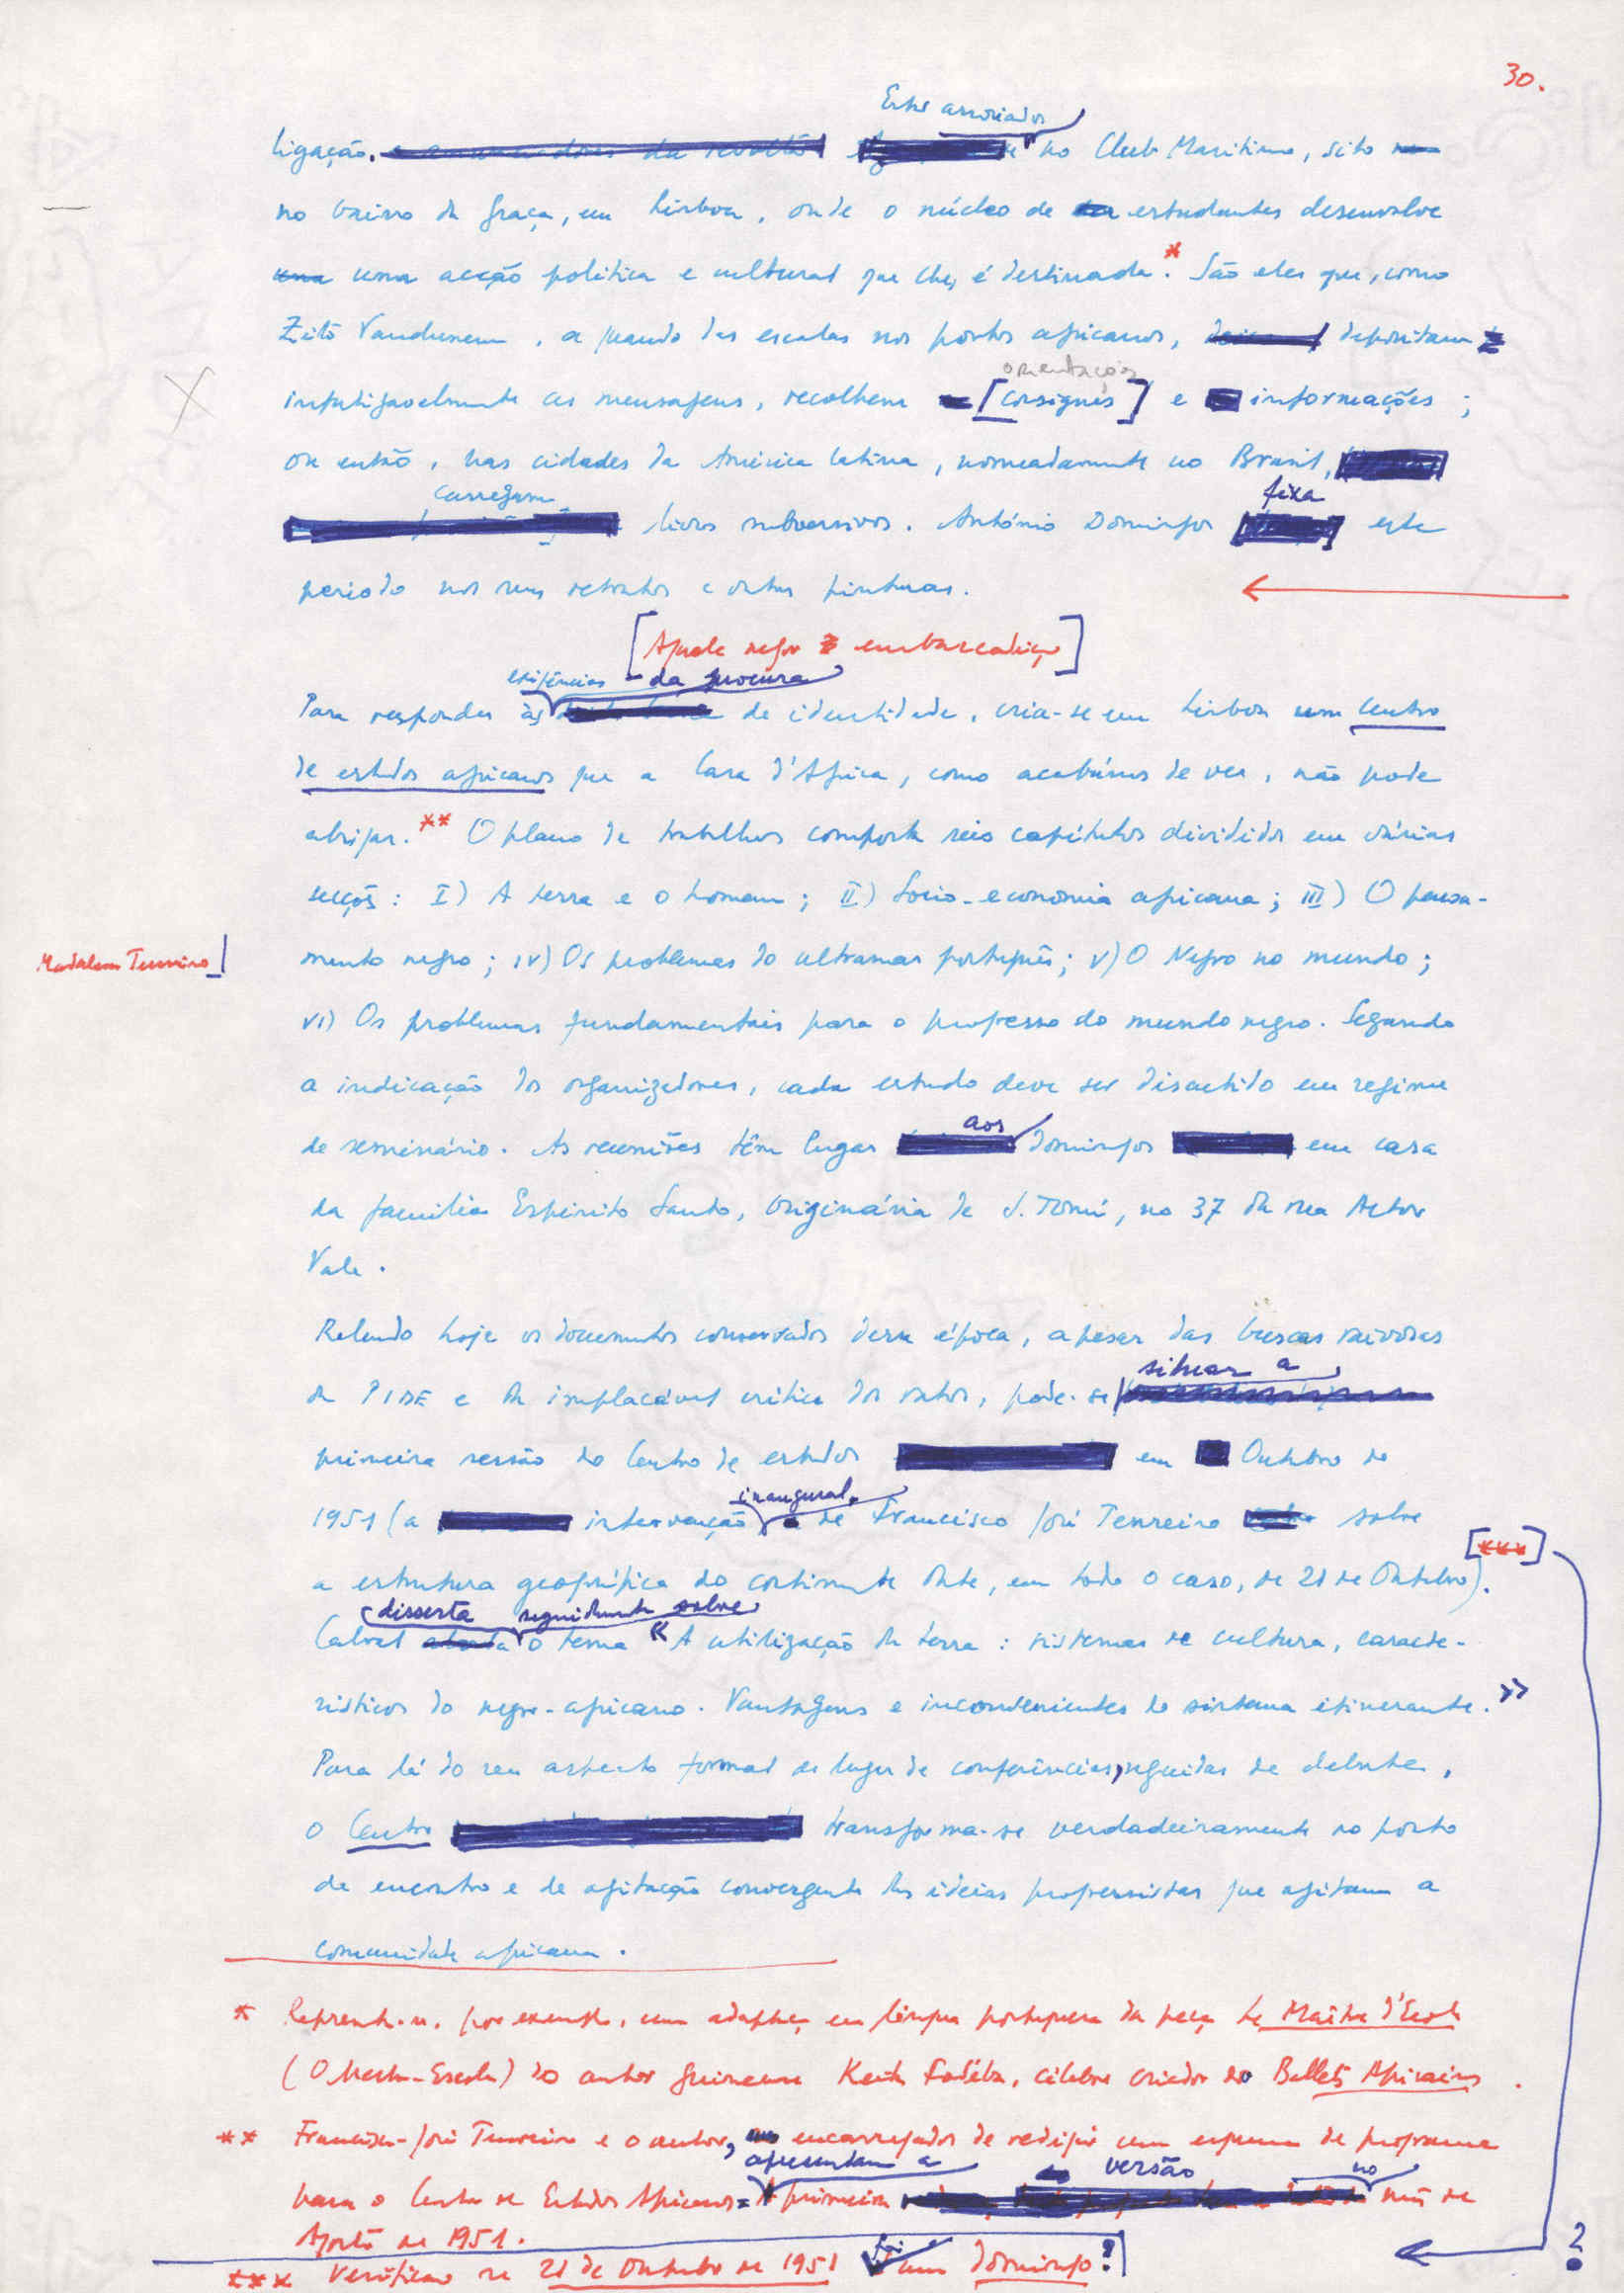 30.
Estes associados
ligação. no Club Maritimo, sito
no bairro da Graça, em Lisboa, onde o núcleo de estudantes desenvolve
uma acção politica e cultural que lhes é destinada.* São eles que, como
Zito Vandunem, a quando das escalas nos portos africanos, depositam
infatigavelmente as mensagens, recolhem [consignes] e informações;
orientações
ou então, nas cidades da América latina, nomeadamente no Brasil,
carregam livros subversivos. António Domingos fixa este
periodo nos seus retratos e outras pinturas.
[Aquele negro embarcadiço]
exigências da procura
Para responder às de identidade, cria-se em Lisboa um Centro
de estudos africanos que a Casa d'Africa, como acabámos de ver, não pode
abrigar.** O plano de trabalhos comporta seis capítulos divididos em várias
secções: I) A terra e o homem; II) Socio-economia africana; III) O pensa-
Madalena Tenreiro
mento negro; IV) Os problemas do ultramar português; V) O Negro no mundo;
VI) Os problemas fundamentais para o progresso do mundo negro. Segundo
a indicação dos organizadores, cada estudo deve ser discutido em regime
de seminário. As reuniões têm lugar aos domingos em casa
da familia Espirito Santo, originária de S. Tomé, no 37 da rua Actor
Vale.
Relendo hoje os documentos conservados dessa época, apesar das buscas raivosas
da PIDE e da implacável critica dos ratos, pode-se situar a
primeira sessão do Centro de estudos em Outubro de
1951 (a intervenção inaugural de Francisco José Tenreiro sobre
[***]
a estrutura geográfica do continente data, em todo o caso, de 21 de Outubro).
disserta seguidamente sobre
Cabral o tema «A utilização da terra: sistemas de cultura, caracte-
risticos do negro-africano. Vantagens e inconvenientes do sistema itinerante.»
Para lá do seu aspecto formal de lugar de conferências, seguidas de debates,
o Centro transforma-se verdadeiramente no ponto
de encontro e de agitação convergente das ideias progressistas que agitam a
comunidade africana.
* Representa-se, por exemplo, uma adaptação em língua portuguesa da peça Le Maître d'Ecole
(O Mestre-Escola) do autor guineense Keita Fodéba, célebre criador do Ballets Africains.
** Francisco-José Tenreiro e o autor, encarregados de redigir um esquema de programa
apresentam a versão no
para o Centro de Estudos Africanos primeira mês de
Agosto de 1951.
*** Verificar se 21 de Outubro de 1951 foi um domingo?
?